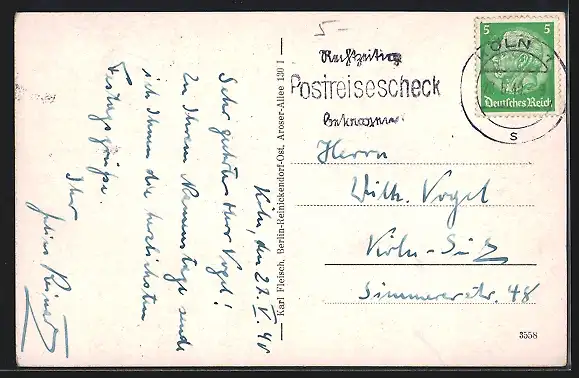 Köln, den 27. V. 40
Sehr geehrter Herr Vogel!
Zu Ihrem Namenstage sende
ich Ihnen die herzlichsten
Festtagsgrüße.
Ihr
Karl Fleisch, Berlin-Reinickendorf-Ost, Aroser-Allee 130 I
5-
Rechtzeitig
Postreisescheck
besorgen
KÖLN
S
5 5
Deutsches Reich
Herrn
Wilh. Vogel
Köln-Sülz
Simmererstr. 48
3558